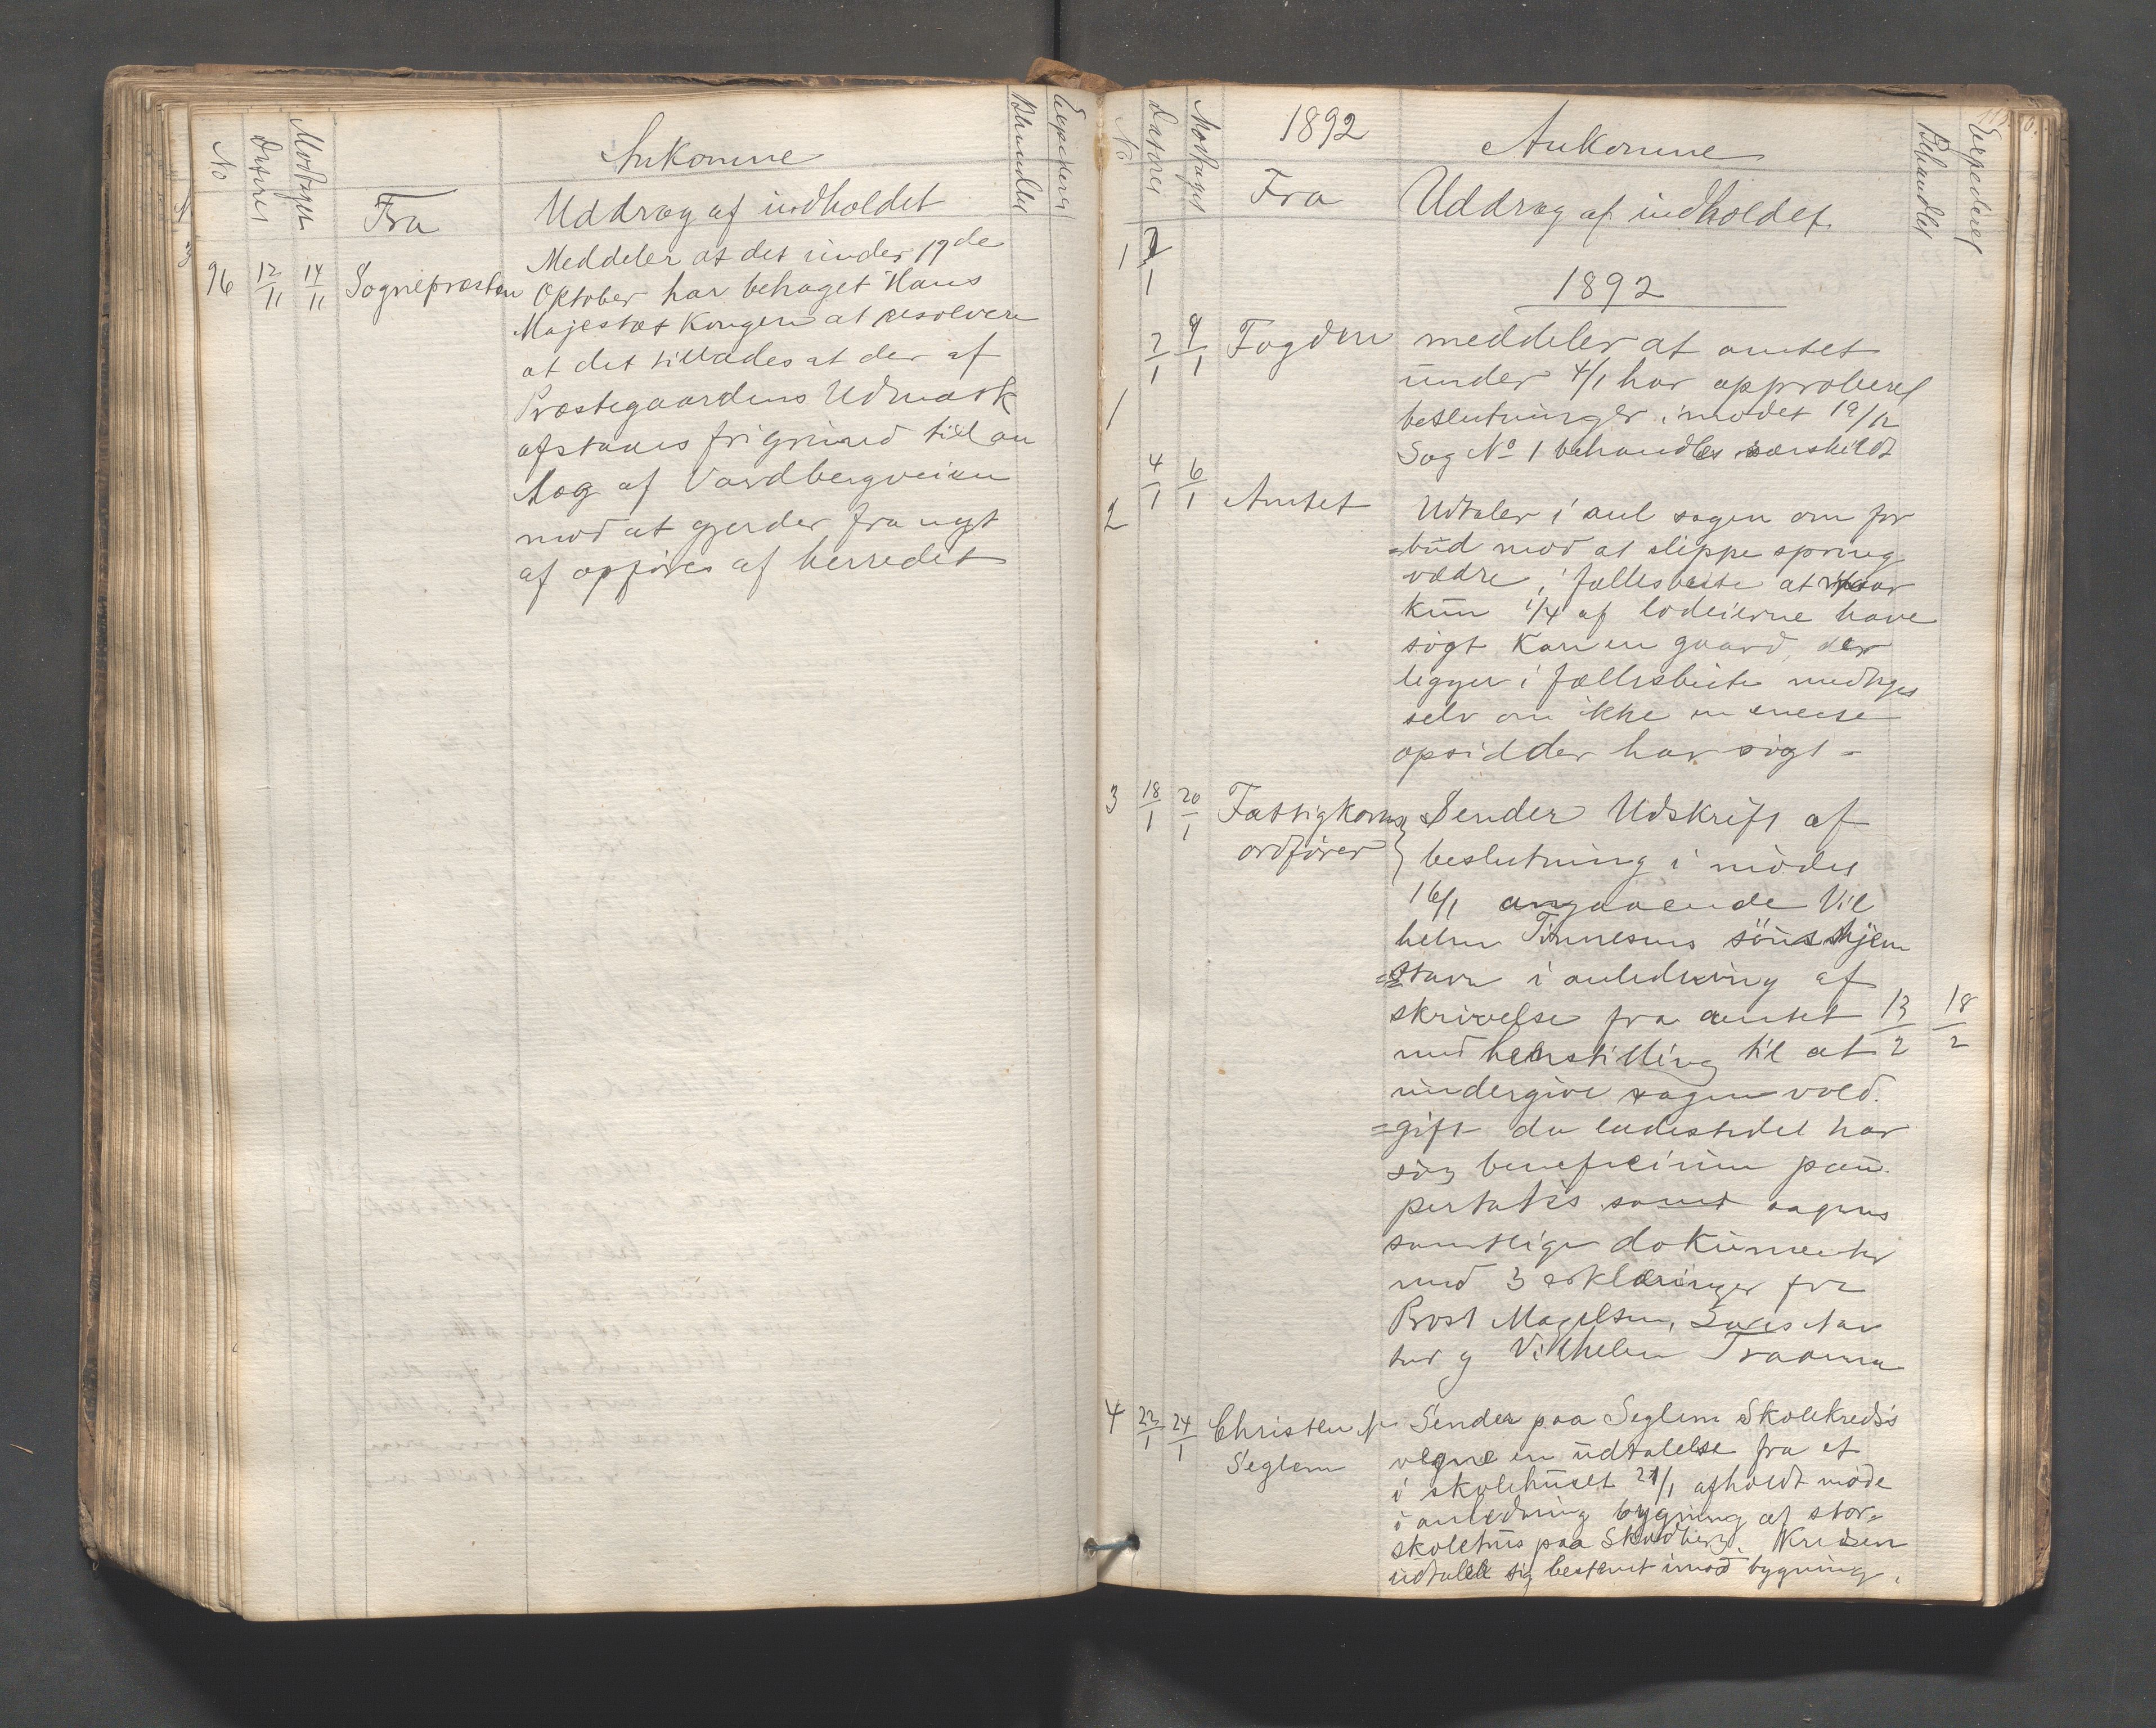 Ankomne
No Dateret Modtaget Fra Uddrag af indholdet Behandlet Expederet
96 12/11 14/11 Sognepresten Meddeler at det under 17de
Oktober har behaget Hans
Majestæt Kongen at resolvere
at det tillades at der af
Præstegaardens Udmark
afstaaes frigrund till an
læg af Vardbergveien
mod at gjerder fra nyt
af opføres af herredet
1892 Ankomne
No Dateret Modtaget Fra Uddrag af indholdet Behandlet Expederet
1892
1 7/1 9/1 Fogden meddeler at amtet
under 4/1 har approberet
beslutninger i mødet 19/12
Sag No 1 behandles særskildt
2 4/1 6/1 Amtet Udtaler i anl sagen om for
=bud mod at slippe spring
vædre i fællesbeite at naar
kun 1/4 af lodeierne have
søgt kan en gaard der
ligger i fællesbeite medtages
selv om ikke en eneste
opsidder har søgt -
3 18/1 20/1 Fattigkoms Sender Udskrift af
ordfører beslutning i mødet
16/1 angaaende Vil
helm Tønnesens søns hjem
=stavn i anledning af
skrivelse fra amtet 13/2 18/2
med henstilling til at
undergive sagen vold.
=gift da ladestedet har
søg beneficium pau.
pertatis samt sagens
samtlige dokumenter
med 3 erklæringer fra
Prost Magelsen,
tur g Vilhelm
4 23/1 24/1 Christen N Sender paa Seglem Skolekreds's
Seglem vegne en udtalelse fra et
i skolehuset 21/1 afholdt møde
i anledning bygning af stor=
skolehus paa Skadberg. Kredsen
udtaler sig bestemt imod bygning.